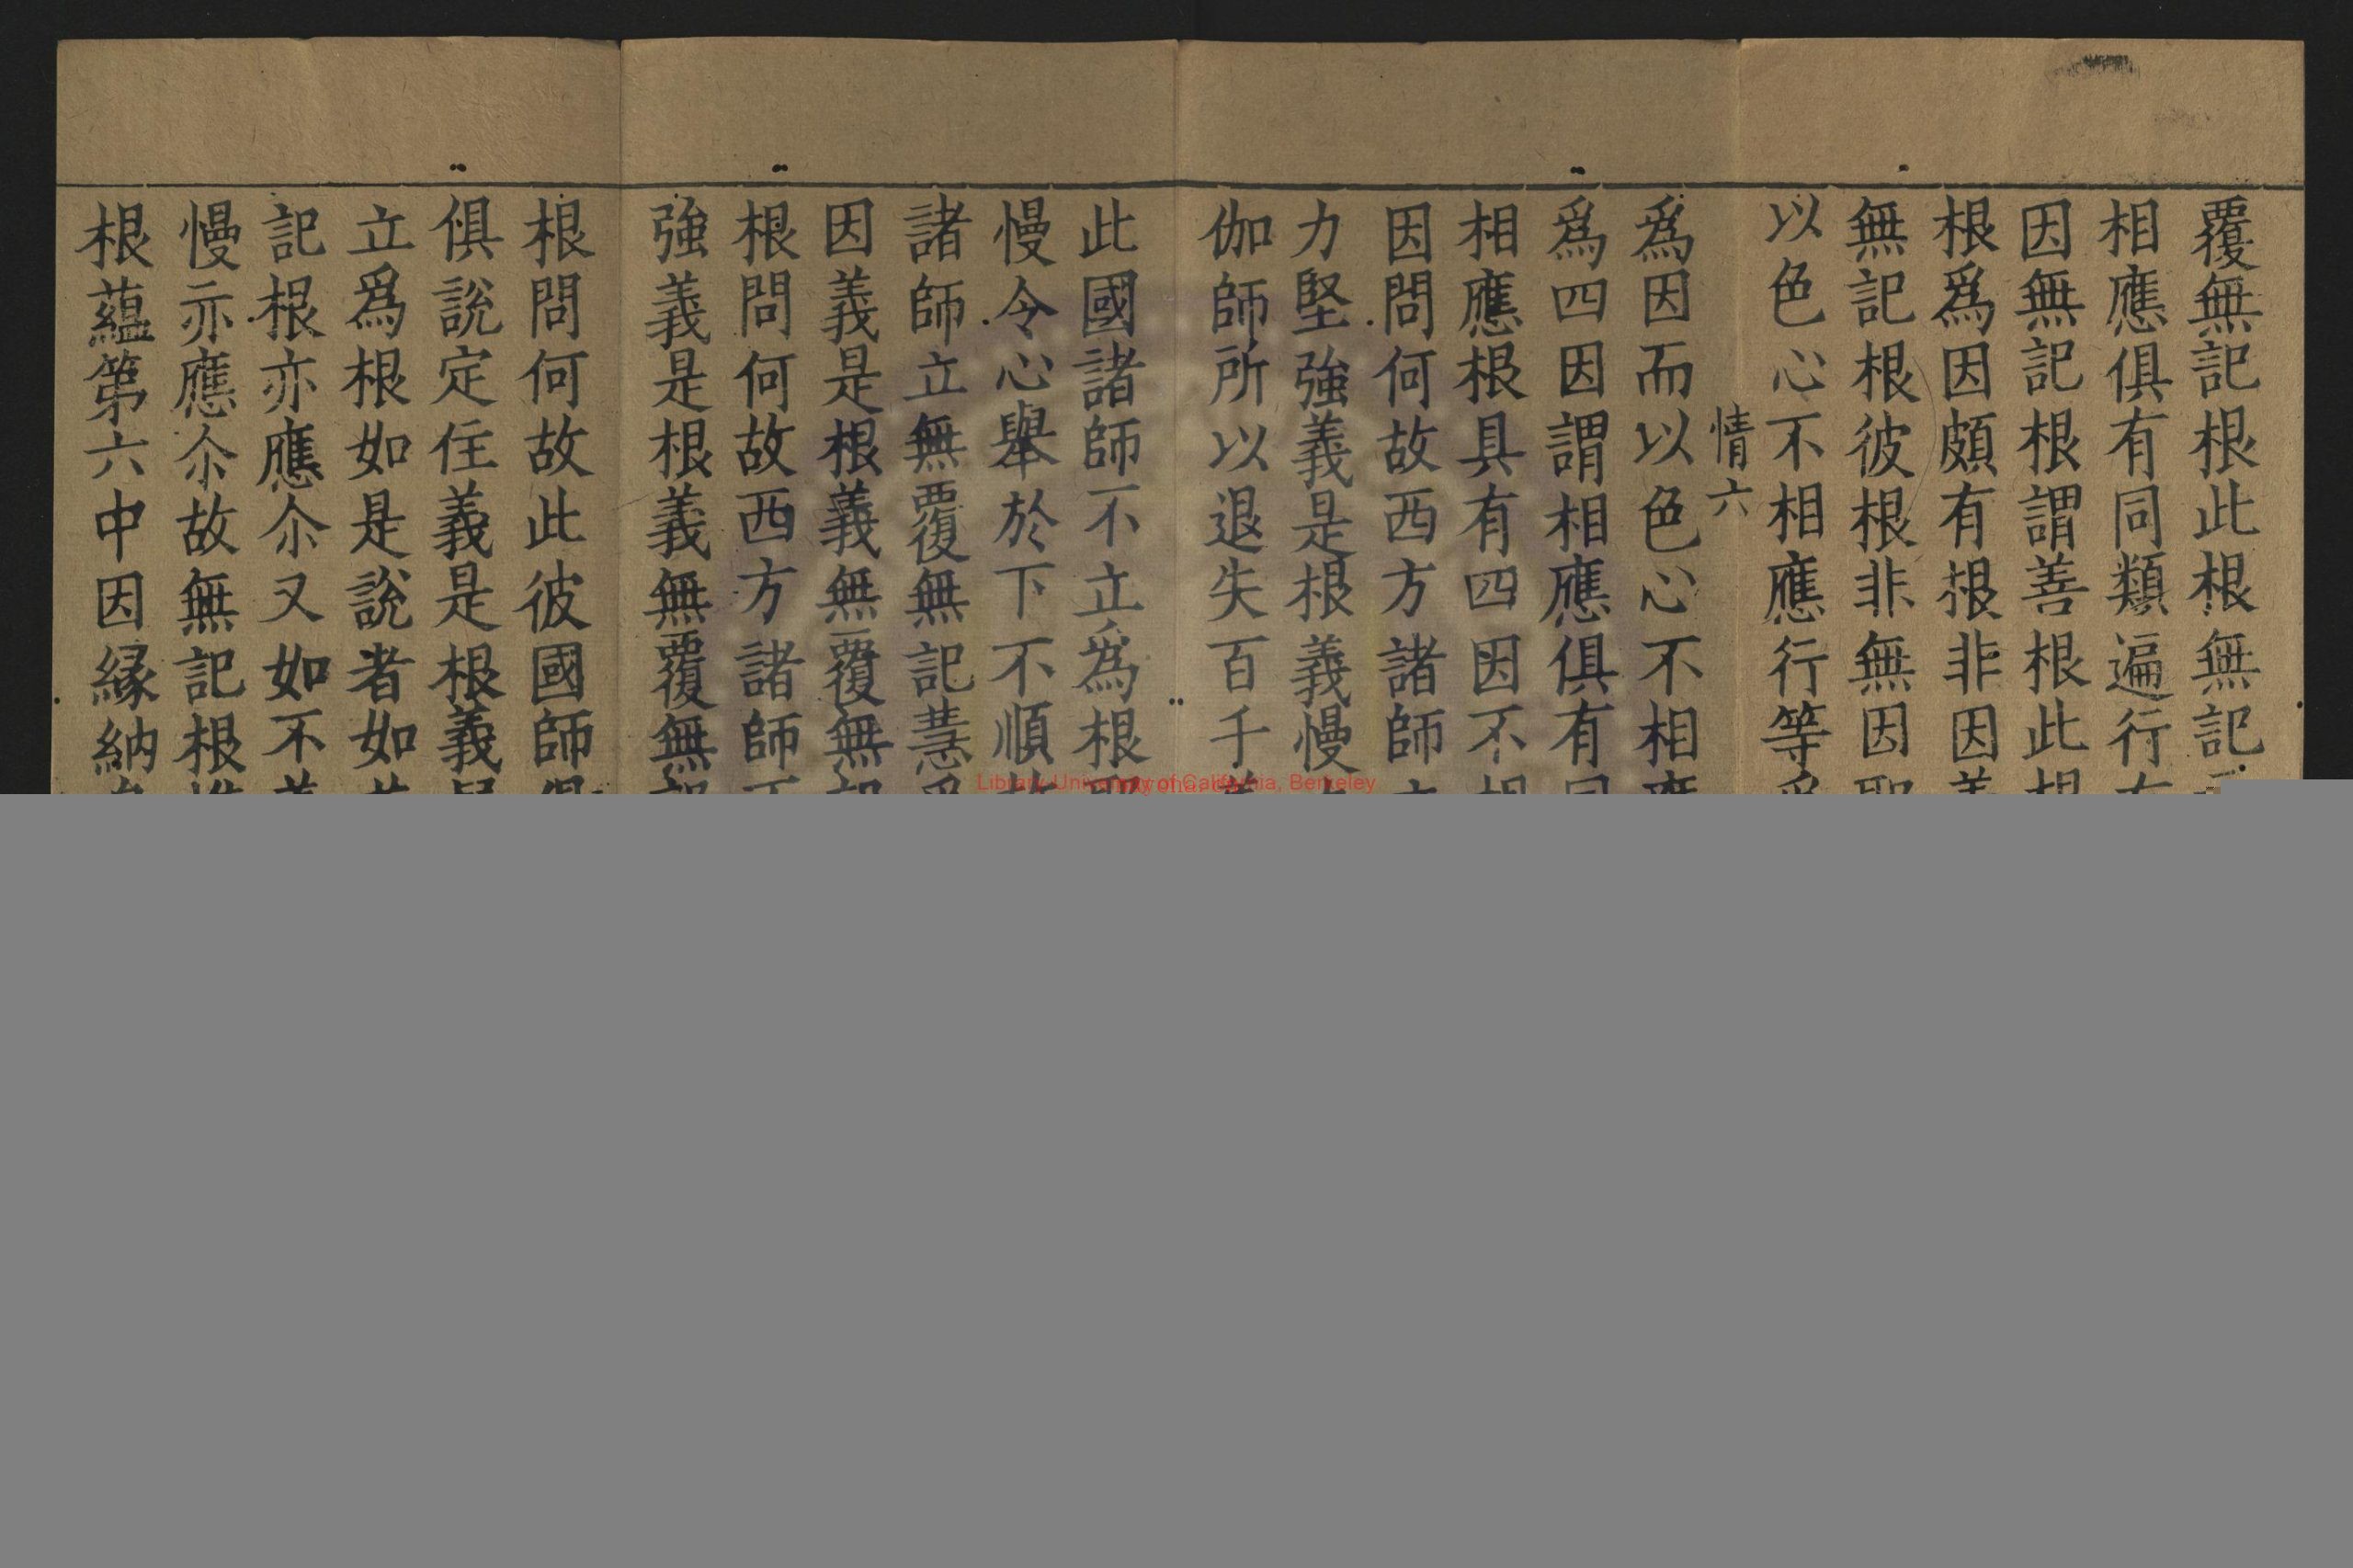 覆無記根此根無記
相應俱有同類遍行
因無記根謂善根此
根爲因頗有根非因
無記根彼根非無因
以色心不相應行等
情六
爲因而以色心不相
爲四因謂相應俱有
相應根具有四因不
因問何故西方諸師
力堅強義是根義慢
伽師所以退失百千
此國諸師不立爲根
慢令心舉於下不順
諸師立無覆無記慧
因義是根義無覆無
根問何故西方諸師
強義是根義無覆無
根問何故此彼國師
俱說定住義是根義
立爲根如是說者如
記根亦應尒又如不
慢亦應尒故無記根
根蘊第六中因緣納
Library, University of California, Berkeley